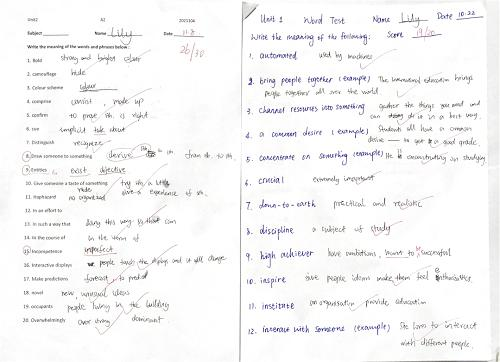 Unit2 A2 2021104
Subject Name Lily Date 11.8
26/30
Write the meaning of the words and phrases below:
1. Bold strong and bright colour
2. camouflage hide
3. Colour scheme colour
4. comprise consist, made up
5. confirm to prove sth is right
6. cue implicit
7. Distinguish recognize
8. Draw someone to something derive sth from sth. to sth.
9. Entities exist objective
10. Give someone a taste of something try sth a little
give a experience of sth.
11. Haphazard no organized
12. In an effort to
13. In such a way that doing this way so that can
14. In the course of in the term of
15. Incompetence imperfect
16. Interactive displays people touch the displays and it will change
17. Make predictions forecast to predict
18. novel new, unusual ideas
19. occupants people living in the building
20. Overwhelmingly over strong dominant
Unit 1 Word Test Name Lily Date 10.22
Write the meaning of the following: Score 19/20
1. automated used by machines
2. bring people together (example) The international education brings
people together all over the world
3. channel resources into something gather the things you need and
can do it in a best way.
4. a common desire (example) Students all have a common
desire to get a good grade.
5. concentrate on something (example) He is concentrating on studying.
6. crucial extremely important
7. down-to-earth practical and realistic
8. discipline a subject of study
9. high achiever have ambitions, want to be successful
10. inspire give people ideas make them feel enthusiastic
11. institute an organisation provide education
12. interact with someone (example) She love to interact
with different people.